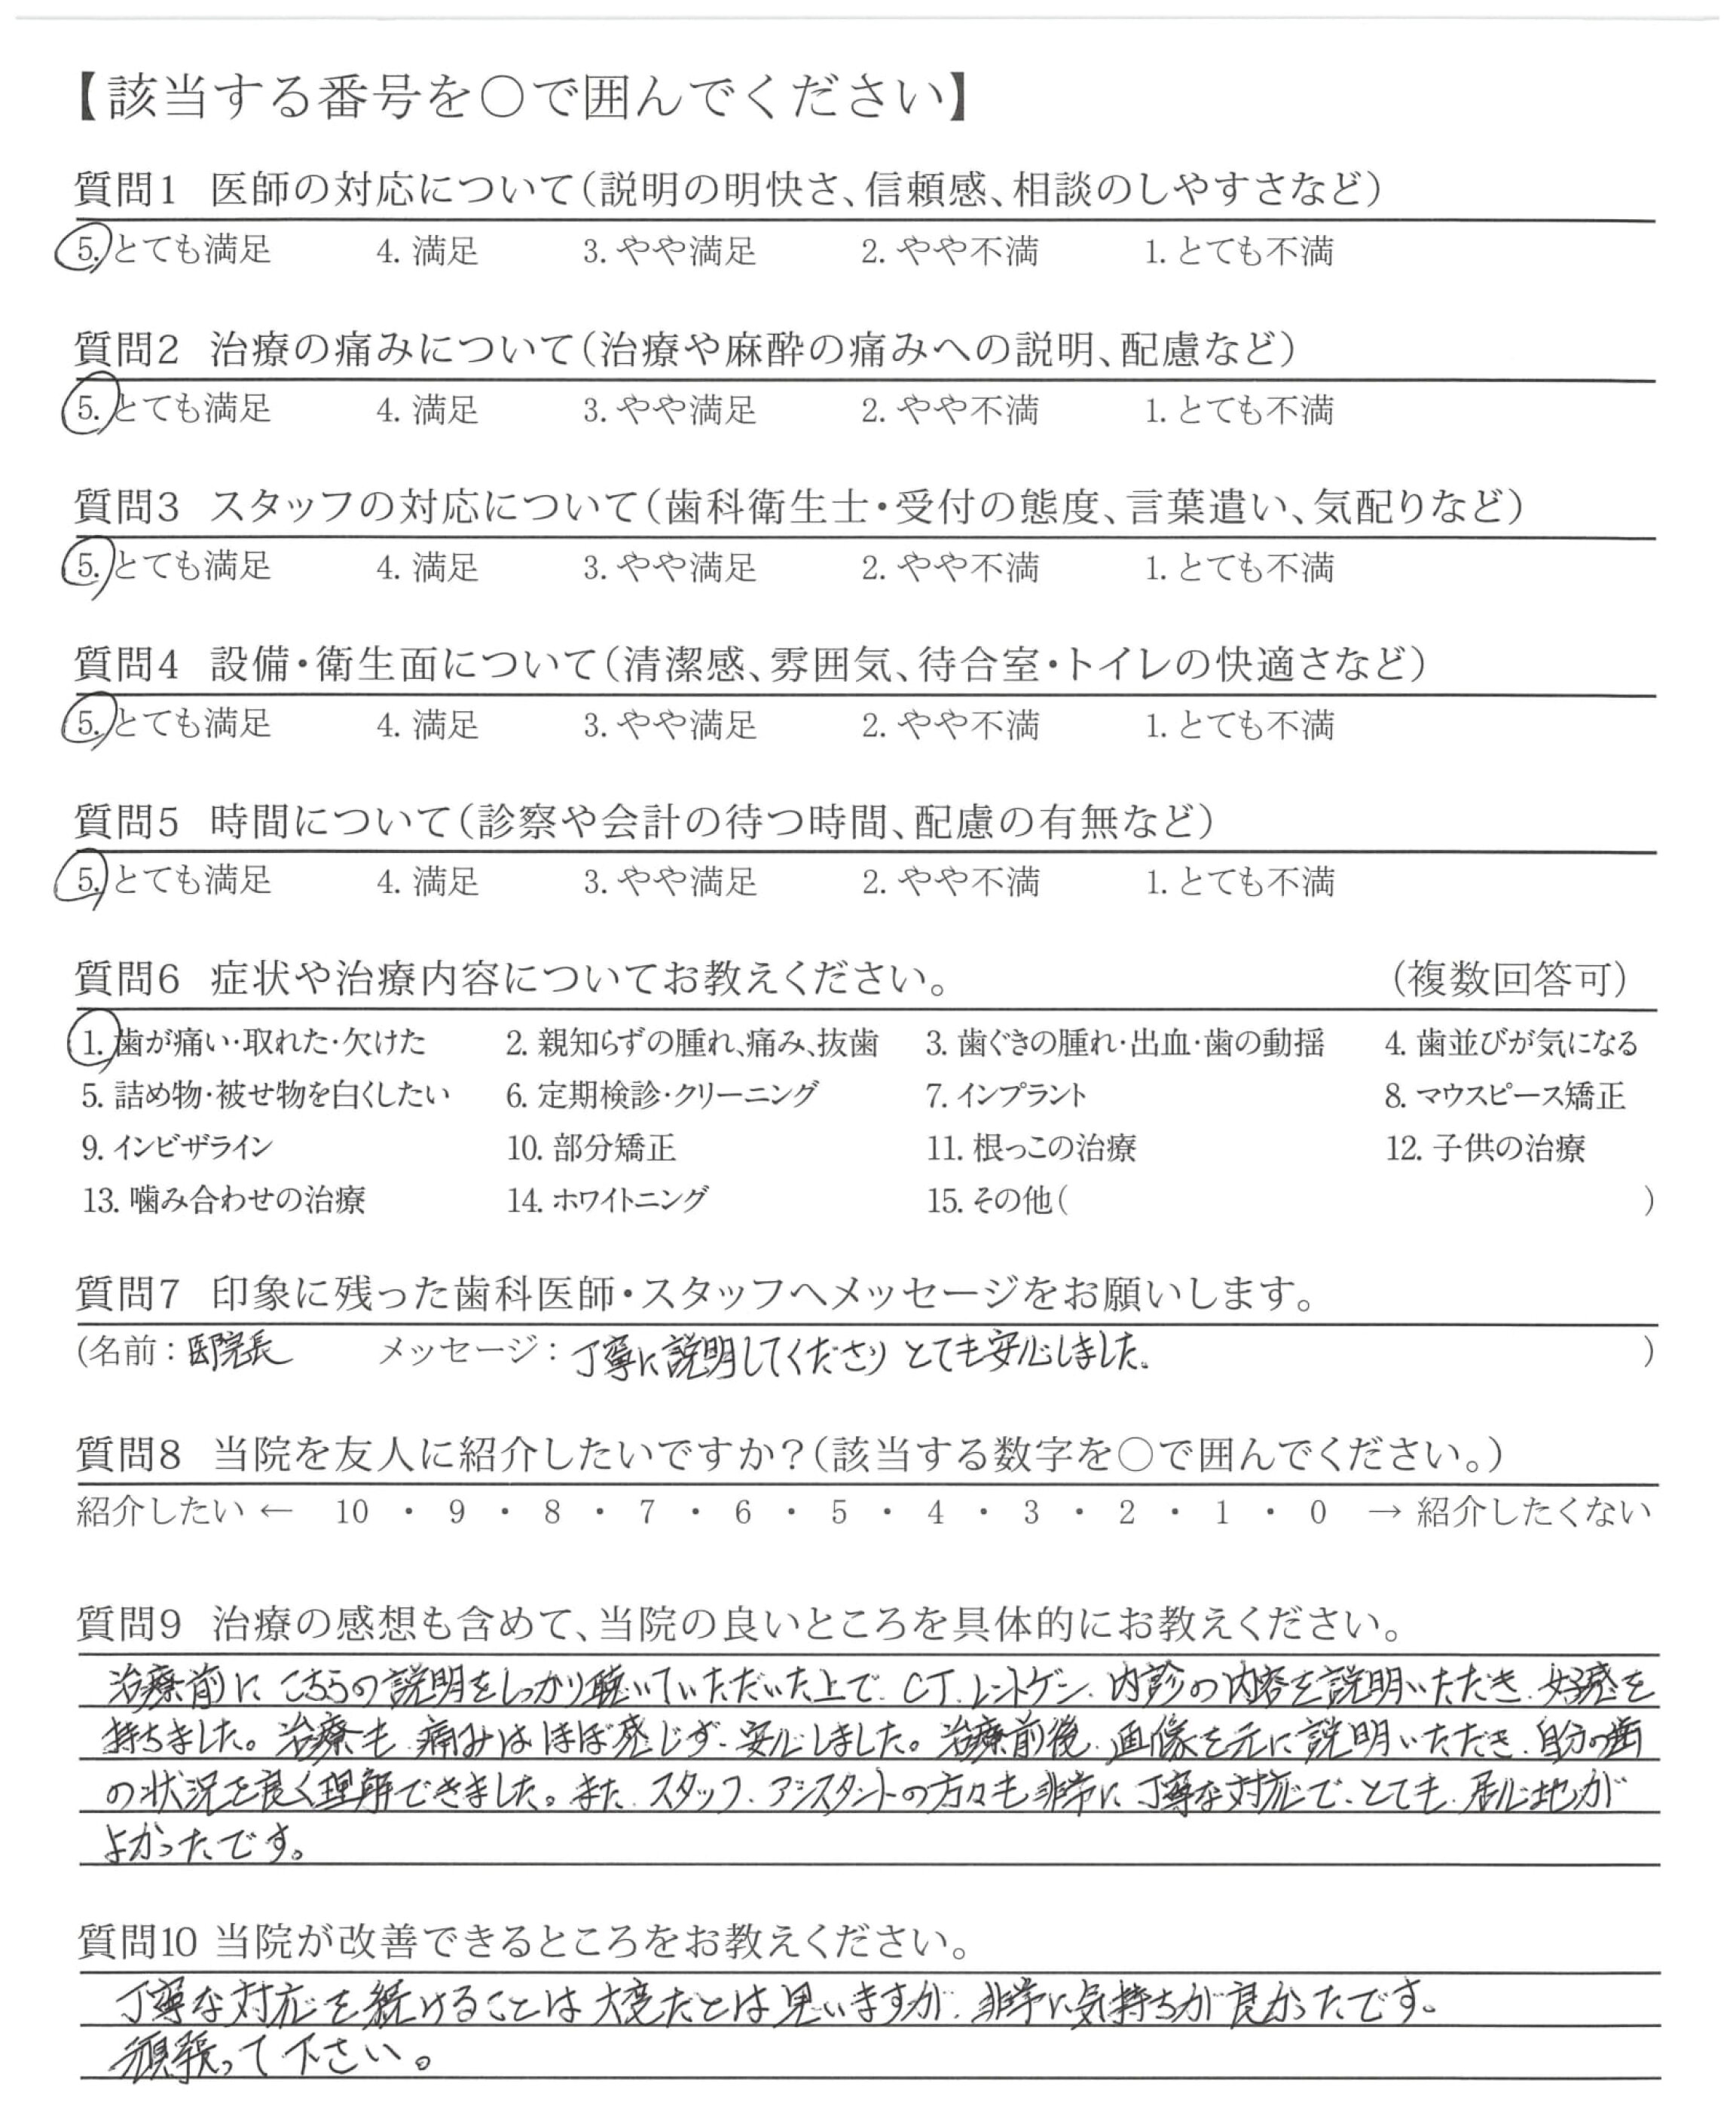 【該当する番号を○で囲んでください】
質問1 医師の対応について(説明の明快さ、信頼感、相談のしやすさなど)
5. とても満足 4. 満足 3. やや満足 2. やや不満 1. とても不満
質問2 治療の痛みについて(治療や麻酔の痛みへの説明、配慮など)
5. とても満足 4. 満足 3. やや満足 2. やや不満 1. とても不満
質問3 スタッフの対応について(歯科衛生士・受付の態度、言葉遣い、気配りなど)
5. とても満足 4. 満足 3. やや満足 2. やや不満 1. とても不満
質問4 設備・衛生面について(清潔感、雰囲気、待合室・トイレの快適さなど)
5. とても満足 4. 満足 3. やや満足 2. やや不満 1. とても不満
質問5 時間について(診察や会計の待つ時間、配慮の有無など)
5. とても満足 4. 満足 3. やや満足 2. やや不満 1. とても不満
質問6 症状や治療内容についてお教えください。 (複数回答可)
1. 歯が痛い・取れた・欠けた 2. 親知らずの腫れ、痛み、抜歯 3. 歯ぐきの腫れ・出血・歯の動揺 4. 歯並びが気になる
5. 詰め物・被せ物を白くしたい 6. 定期検診・クリーニング 7. インプラント 8. マウスピース矯正
9. インビザライン 10. 部分矯正 11. 根っこの治療 12. 子供の治療
13. 噛み合わせの治療 14. ホワイトニング 15. その他( )
質問7 印象に残った歯科医師・スタッフへメッセージをお願いします。
(名前: 院長 メッセージ: 丁寧に説明してくださり とても安心しました。 )
質問8 当院を友人に紹介したいですか?(該当する数字を○で囲んでください。)
紹介したい ← 10 ・ 9 ・ 8 ・ 7 ・ 6 ・ 5 ・ 4 ・ 3 ・ 2 ・ 1 ・ 0 → 紹介したくない
質問9 治療の感想も含めて、当院の良いところを具体的にお教えください。
治療前に こちらの説明をしっかり聴いていただいた上で、CT、レントゲン、内診の内容を説明いただき、好感を
持ちました。治療も、痛みはほぼ感じず、安心しました。治療前後、画像を元に説明いただき、自分の歯
の状況を良く理解できました。また、スタッフ、アシスタントの方々も非常に丁寧な対応で、とても、居心地が
よかったです。
質問10 当院が改善できるところをお教えください。
丁寧な対応を続けることは大変だとは思いますが、非常に気持ちが良かったです。
頑張って下さい。